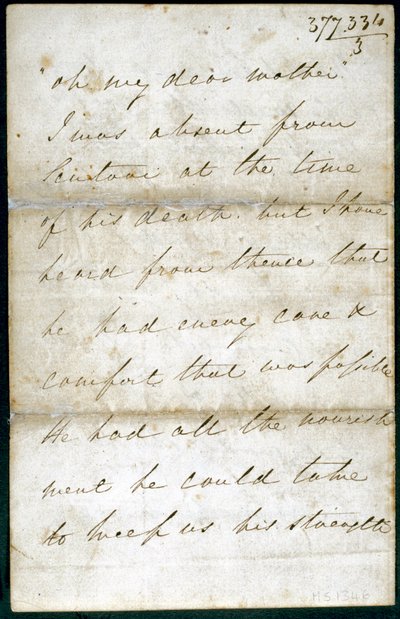 377.334
3
"oh my dear mother"
I was absent from
Scutari at the time
of his death. but I have
heard from thence that
he had every care &
comfort that was possible
He had all the nourish
ment he could take
to keep up his strength
MS1346